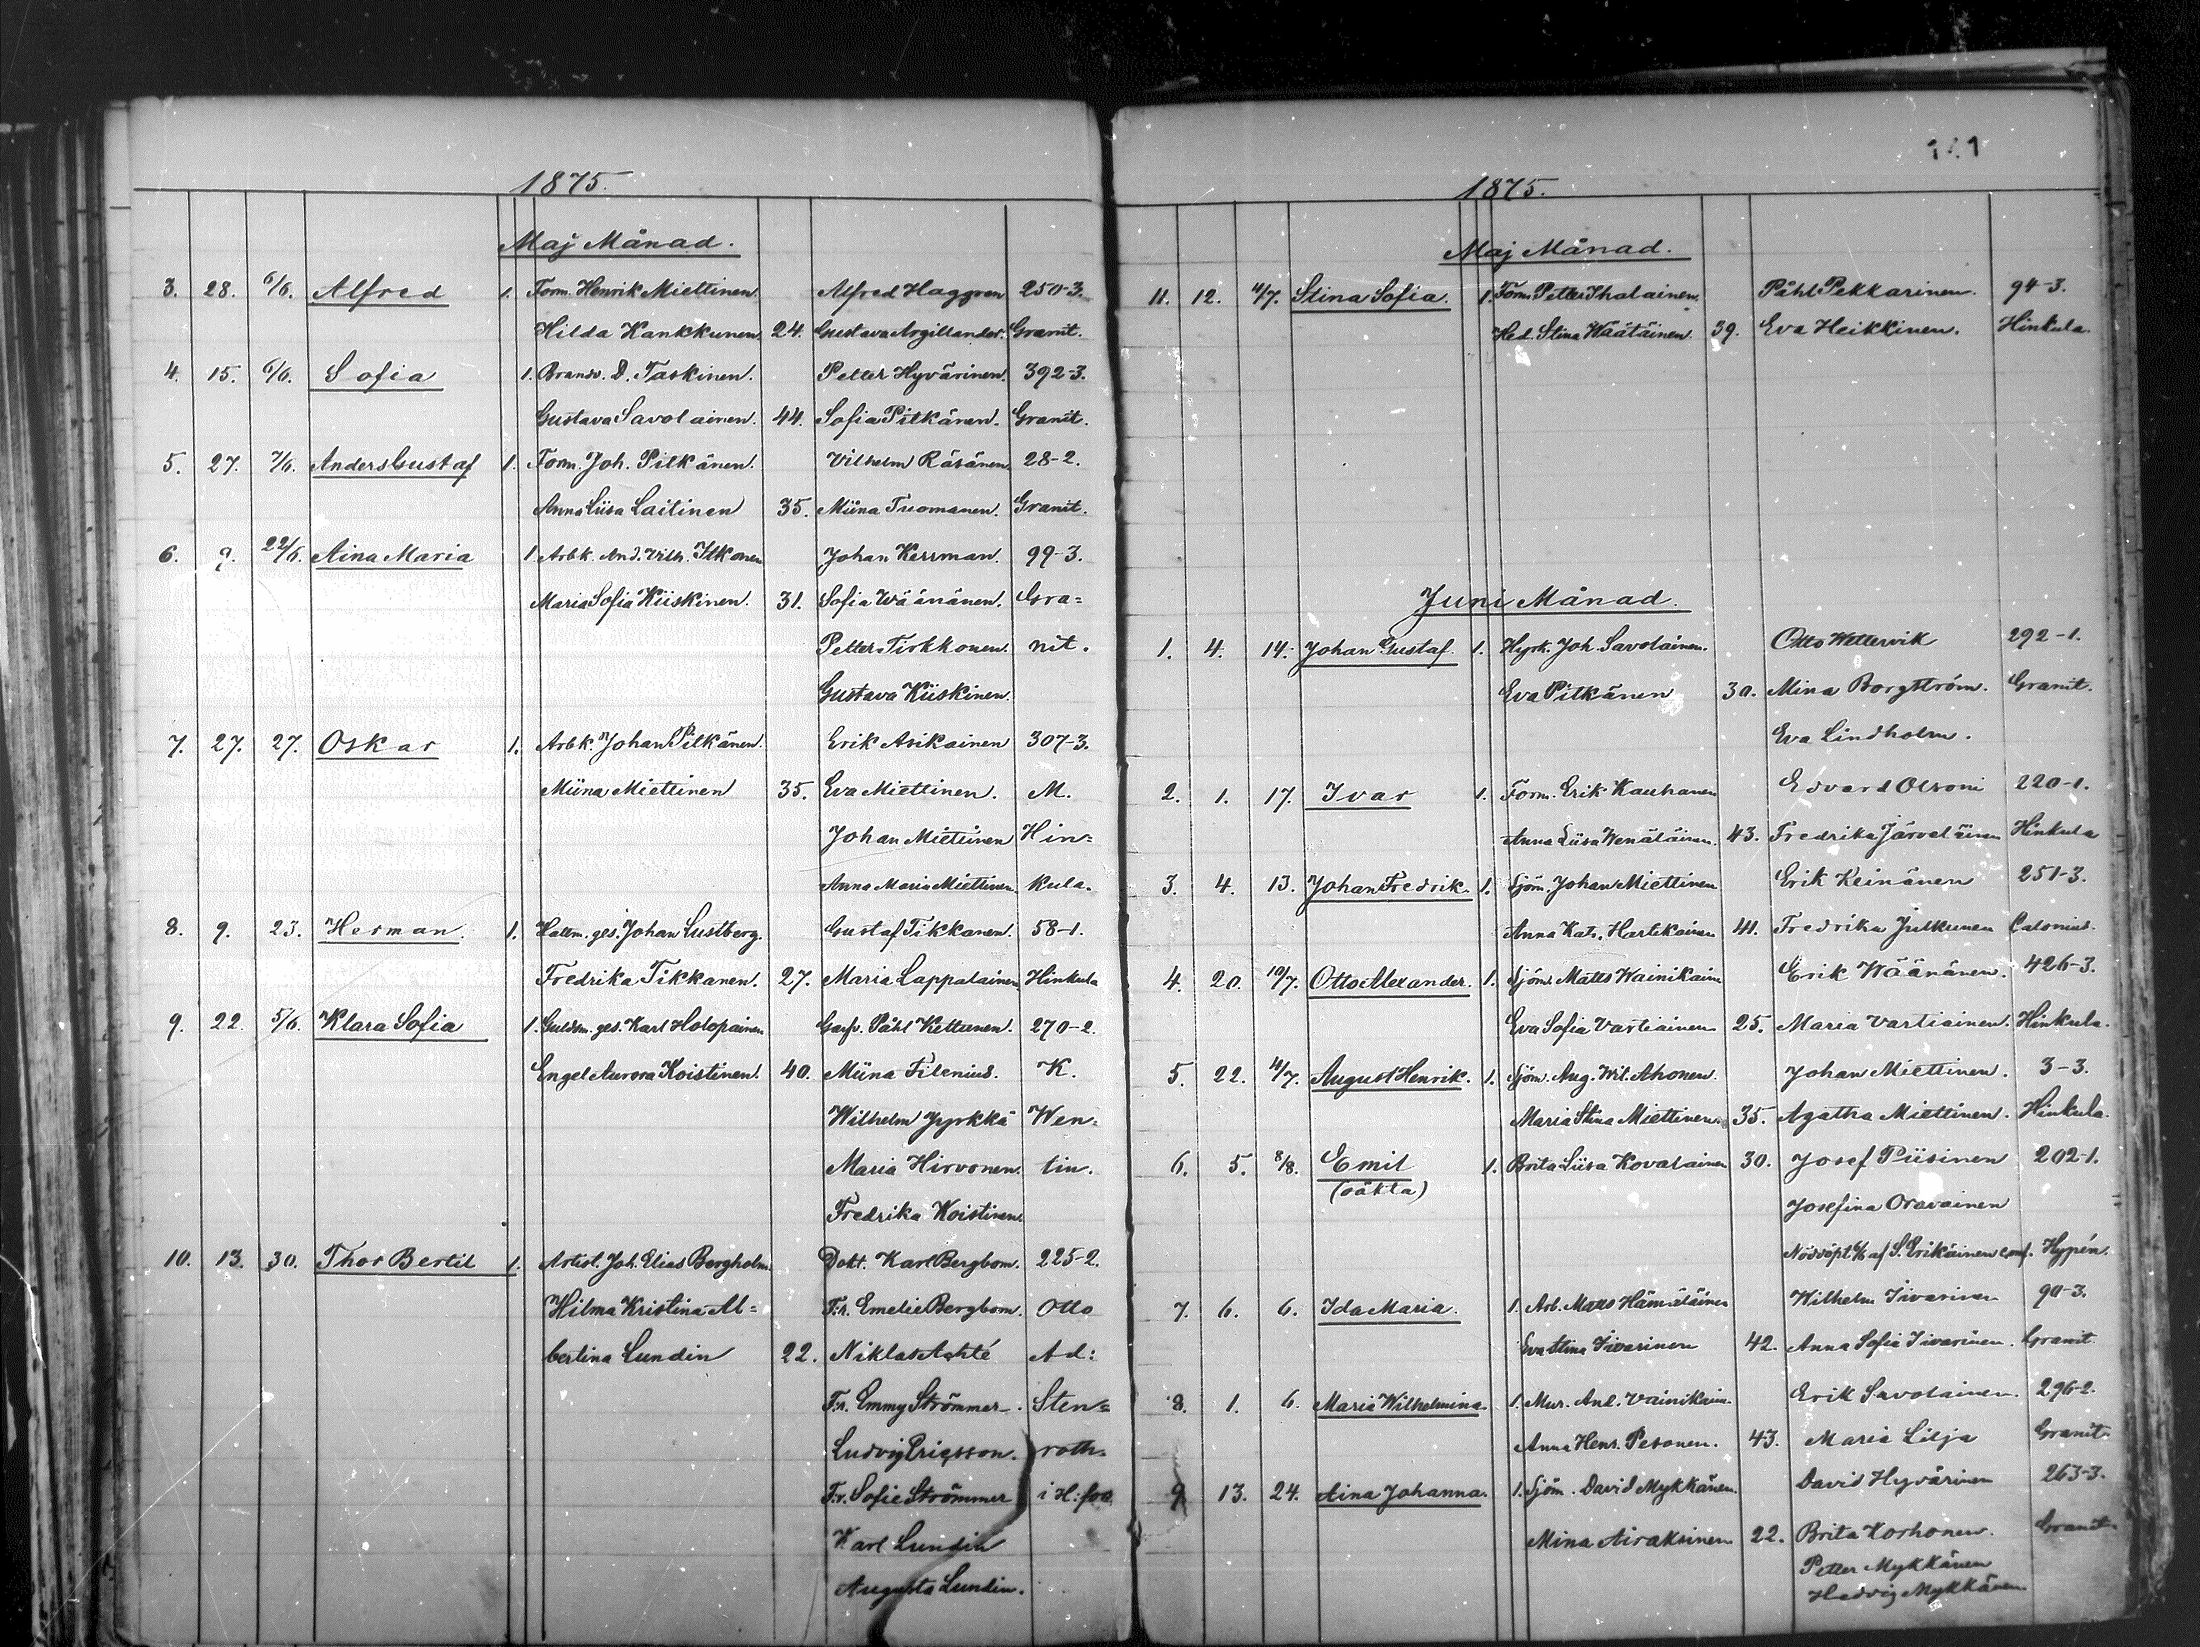 1875.
Maj Månad.
3. 28. 6/6. Alfred 1. Form. Henrik Miettinen. Alfred Haggren 250-3.
Hilda Kankkunen. 24. Gustava Argillander. Granit.
4. 15. 6/6. Sofia 1. Brandv. D. Taskinen. Petter Hyvärinen. 392-3.
Gustava Savolainen. 44. Sofia Pitkänen. Granit.
5. 27. 7/6. Anders Gustaf 1. Form. Joh. Pitkänen. Vilhelm Räsänen. 28-2.
Anna Liisa Laitinen 35. Miina Tuomanen. Granit.
6. 9. 22/6. Aina Maria 1. Arbk. And. Vilh. Itkonen Johan Kerrman. 99-3.
Maria Sofia Kiiskinen. 31. Sofia Wäänänen. Gra=
Petter Tirkkonen. nit.
Gustava Kiiskinen.
7. 27. 27. Oskar 1. Arbk. Johan Pitkänen. Erik Asikainen 307-3.
Miina Miettinen 35. Eva Miettinen. M.
Johan Miettinen Hin=
Anna Maria Miettinen. kula.
8. 9. 23. Herman. 1. Hattm. ges. Johan Lustberg. Gustaf Tikkanen. 58-1.
Fredrika Tikkanen. 27. Maria Lappalainen Hinkula
9. 22. 5/6. Klara Sofia 1. Guldsm. ges. Karl Holopainen Garfv. Påhl Kettunen. 270-2.
Engel Aurora Koistinen. 40. Miina Filenius. K.
Wilhelm Jyrkkä Wen=
Maria Hirvonen. tin.
Fredrika Koistinen.
10. 13. 30. Thor Bertil 1. Artist. Joh. Elias Bergholm. Dokt. Karl Bergbom. 225-2.
Hilma Kristina Al= F:r. Emelie Bergbom. Otto
bertina Lundin 22. Niklas Achté Ad:
F:r. Emmy Strömmer. Sten=
Ludvig Ericsson. roth.
F:r. Sofie Strömmer i H:fors
Karl Lundin
Augusta Lundin.
141
1875.
Maj Månad.
11. 12. 4/7. Stina Sofia. 1. Form. Petter Ihalainen. Påhl Pekkarinen. 94-3.
Hed. Stina Väätäinen 39. Eva Heikkinen. Hinkula.
Juni Månad.
1. 4. 14. Johan Gustaf. 1. Hyrk. Joh. Savolainen. Otto Wettervik 292-1.
Eva Pitkänen 30. Mina Borgström. Granit.
Eva Lindholm.
2. 1. 17. Ivar 1. Form. Erik Kauhanen Edvard Olsoni 220-1.
Anna Liisa Wenäläinen. 43. Fredrika Järveläinen Hinkula
3. 4. 13. Johan Fredrik. 1. Sjöm. Johan Miettinen Erik Keinänen 251-3.
Anna Kat. Hartikainen 41. Fredrika Julkunen Calonius.
4. 20. 10/7. Otto Alexander. 1. Sjöm. Matts Wainikain Erik Wäänänen. 426-3.
Eva Sofia Vartiainen 25. Maria Vartiainen. Hinkula.
5. 22. 4/7. August Henrik. 1. Sjöm. Aug. Wil. Ahonen. Johan Miettinen. 3-3.
Maria Stina Miettinen. 35. Agatha Miettinen. Hinkula.
6. 5. 8/8. Emil 1. Brita Liisa Kovalainen 30. Josef Piisinen 202-1.
(oäkta) Josefina Oravainen
Nöddöpt af S. Erikäinen conf. Hypén.
7. 6. 6. Ida Maria. 1. Arb. Matts Hämäläinen Wilhelm Iivarinen 90-3.
Eva Stina Iivarinen 42. Anna Sofia Iivarinen. Granit
8. 1. 6. Maria Wilhelmina. 1. Mur. And. Vainikain. Erik Savolainen. 296-2.
Anna Henr. Pesonen. 43. Maria Lilja Granit.
9. 13. 24. Aina Johanna. 1. Sjöm. David Mykkänen. David Hyvärinen 263-3.
Mina Airaksinen 22. Brita Korhonen. Granit.
Petter Mykkänen
Hedvig Mykkänen